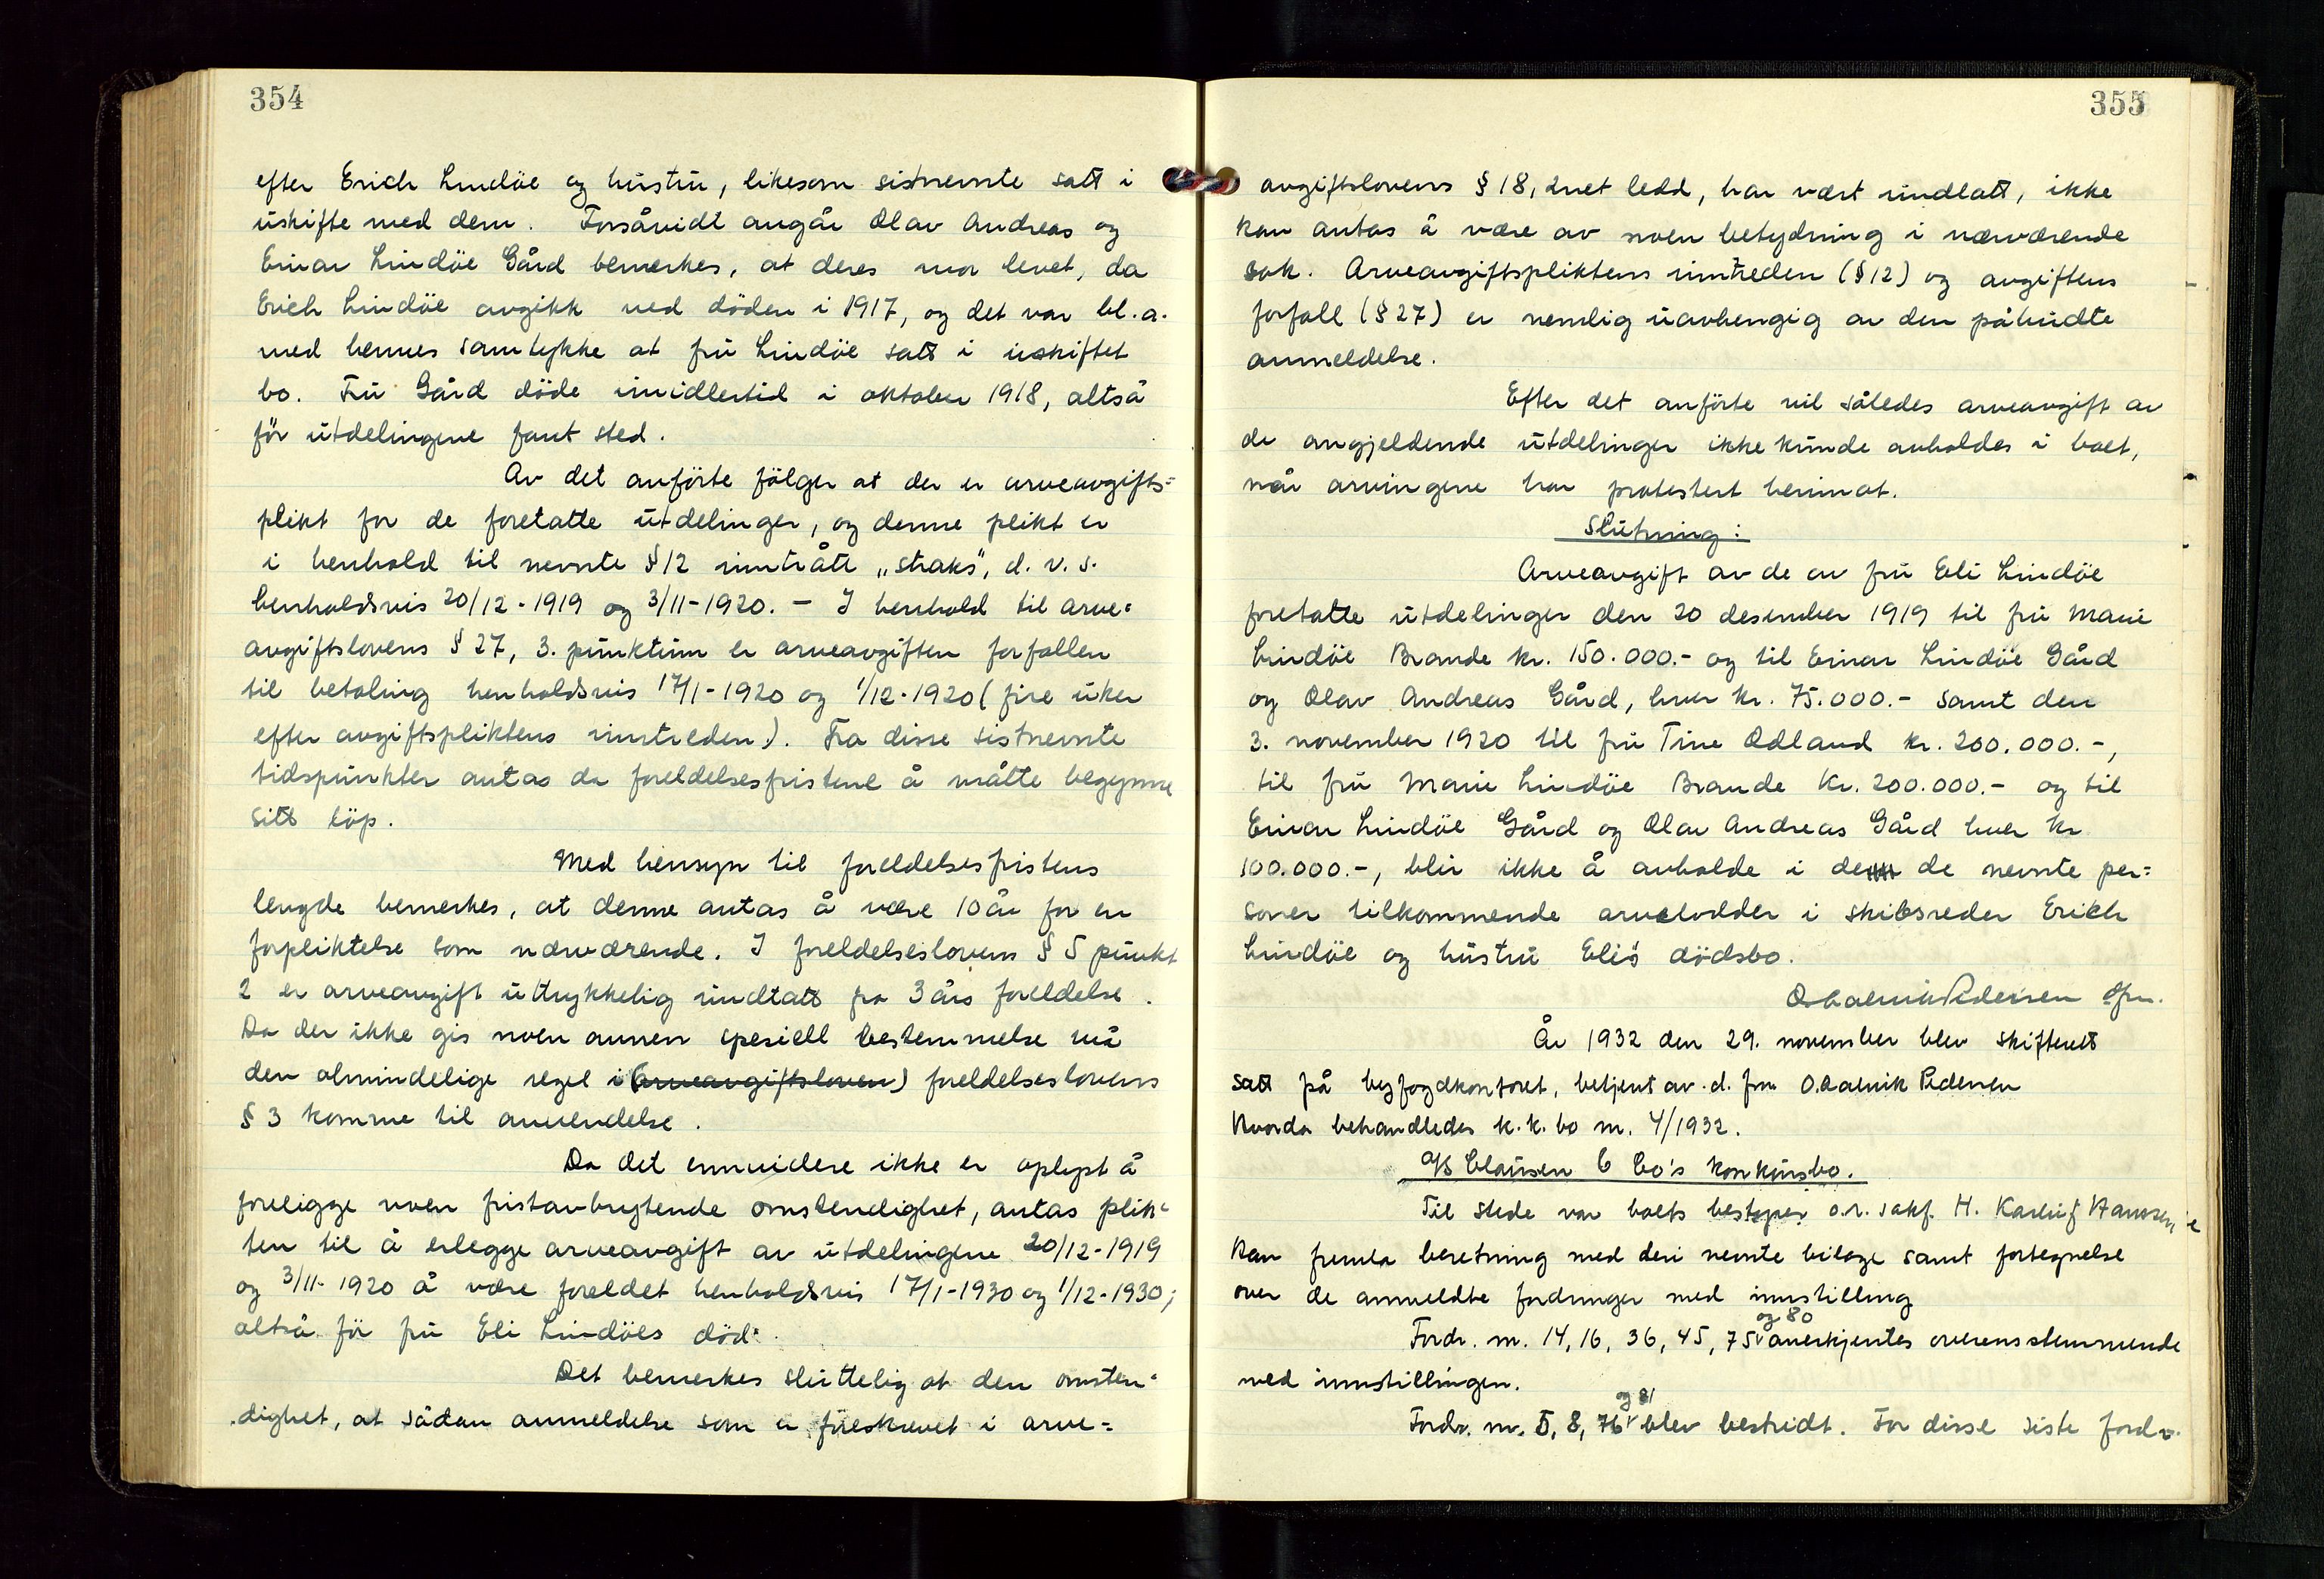 354
efter Erich Lindöe og hustru, likesom sistnevnte satt i
uskifte med dem. Forsåvidt angår Olav Andreas og
Einar Lindöe Gård bemerkes, at deres mor levet, da
Erich Lindöe avgikk ved döden i 1917, og det var bl.a.
med hennes samtykke at fru Lindöe satt i uskiftet
bo. Fru Gård döde imidlertid i oktober 1918, altså
för utdelingene fant sted.
Av det anförte fölger at der er arveavgifts=
plikt for de foretatte utdelinger, og denne plikt er
i henhold til nevnte § 12 inntrått „straks", d.v.s.
henholdsvis 20/12-1919 og 3/11-1920. - I henhold til arve=
avgiftslovens § 27, 3. punktum er arveavgiften forfallen
til betaling henholdsvis 17/1-1920 og 1/12-1920 (fire uker
efter avgiftspliktens inntreden). Fra disse sistnevnte
tidspunkter antas da foreldelsesfristene å måtte begynne
sitt löp.
Med hensyn til foreldelsesfristens
lengde bemerkes, at denne antas å være 10 år for en
forpliktelse som nærværende. I foreldelseslovens § 5 punkt
2 er arveavgift uttrykkelig undtatt fra 3 års foreldelse.
Da der ikke gis noen annen spesiell bestemmelse må
den almindelige regel i (arveavgiftsloven) foreldelseslovens
§ 3 komme til anvendelse.
Da det ennvidere ikke er oplyst å
foreligge noen fristavbrytende omstendighet, antas plik=
ten til å erlegge arveavgift av utdelingene 20/12-1919
og 3/11-1920 å være foreldet henholdsvis 17/1-1930 og 1/12-1930;
altså för fru Eli Lindöes död.
Det bemerkes sluttelig at den omsten=
dighet, at sådan anmeldelse som er föreskrevet i arve=
355
avgiftslovens § 18, 2net ledd, har vært undlatt, ikke
kan antas å være av noen betydning i nærværende
sak. Arveavgiftspliktens inntreden (§ 12) og avgiftens
forfall (§ 27) er nemlig uavhengig av den påbudte
anmeldelse.
Efter det anförte vil således arveavgift av
de angjeldende utdelinger ikke kunde avholdes i boet,
når arvingene har protestert herimot.
Slutning:
Arveavgift av de av fru Eli Lindöe
foretatte utdelinger den 20 desember 1919 til fru Marie
Lindöe Brande kr. 150.000.- og til Einar Lindöe Gård
og Olav Andreas Gård, hver kr. 75.000.- samt den
3. november 1920 til fru Tine Odland kr. 200.000.-,
til fru Marie Lindöe Brande kr. 200.000.- og til
Einar Lindöe Gård og Olav Andreas Gård hver kr
100.000.-, blir ikke å avholde i de de nevnte per=
soner tilkommende arvelodder i skibsreder Erich
Lindöe og hustru Eli's dödsbo.
Pedersen
År 1932 den 29. november blev skifterett
satt på byfogdkontoret, betjent av d. fm. O. Pedersen
Hvorda behandledes k.k. bo nr. 4/1932.
A/S Clausen & Co's konkursbo.
Til stede var boets bestyrer o.r. sakf. H. Hanssen
Han fremla beretning med deri nevnte bilage samt fortegnelse
over de anmeldte fordringer med innstilling
Fordr. nr. 14, 16, 36, 45, 75 og 80 anerkjentes overensstemmende
med innstillingen.
Fordr. nr. 5, 8, 76 og 81 blev bestridt. For disse siste fordr.